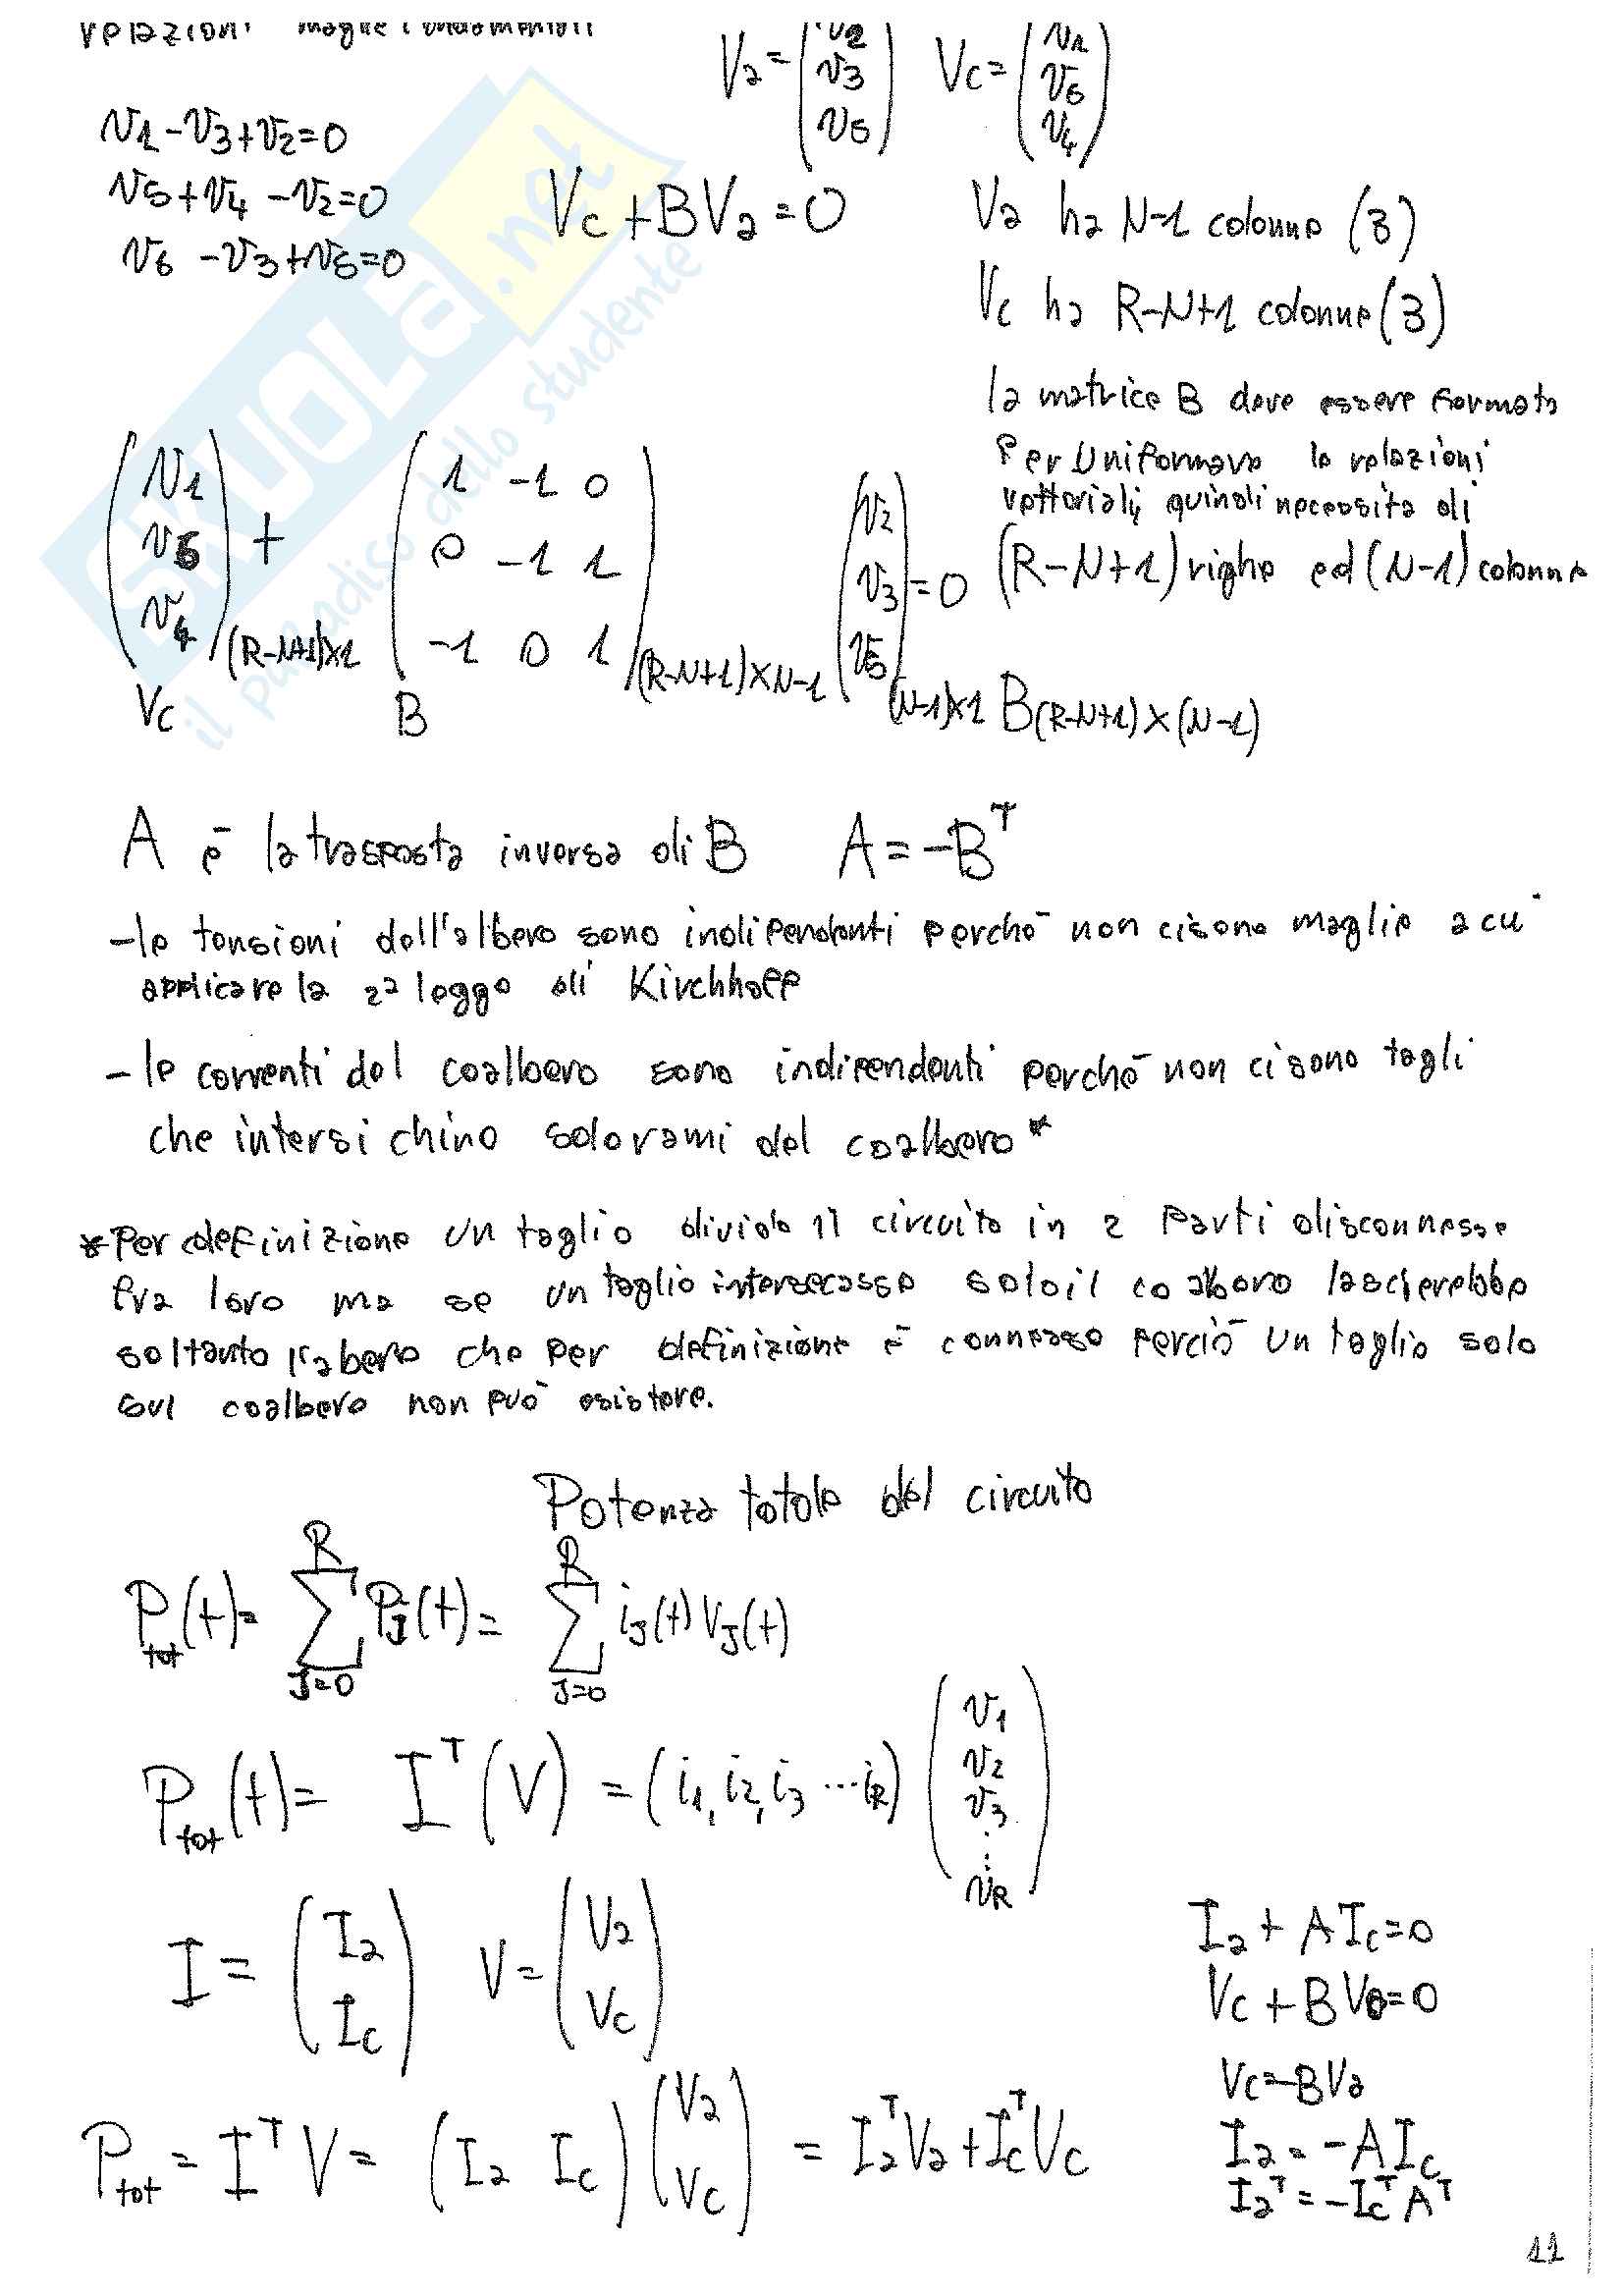 relazioni maglie fondamentali
Va = (v2 v3 v5) Vc = (v1 v6 v4)
v1 - v3 + v2 = 0
v5 + v4 - v2 = 0
v6 - v3 + v5 = 0
Vc + B Va = 0
Va ha N-1 colonne (3)
Vc ha R-N+1 colonne (3)
la matrice B deve essere formata
per uniformare le relazioni
vettoriali, quindi necessita di
(R-N+1) righe ed (N-1) colonne
(v1 v6 v4) (R-N+1)x1 + (1 -1 0
0 -1 1
-1 0 1) (R-N+1)xN-1 (v2 v3 v5) (N-1)x1 = 0
Vc B B(R-N+1)x(N-1)
A è la trasposta inversa di B A = -B^T
- le tensioni dell'albero sono indipendenti perchè non ci sono maglie a cui
applicare la 2a legge di Kirchhoff
- le correnti del coalbero sono indipendenti perchè non ci sono tagli
che intersichino solo rami del coalbero *
* Per definizione un taglio divide il circuito in 2 parti disconnesse
fra loro ma se un taglio intersecasse solo il coalbero lascierebbe
soltanto l'abero che per definizione è connesso perciò un taglio solo
sul coalbero non può esistere.
Potenza totale del circuito
Ptot(t) = Σ_{J=0}^{R} PJ(t) = Σ_{J=0}^{R} iJ(t) VJ(t)
Ptot(t) = I^T (V) = (i1, i2, i3 ... iR) (v1 v2 v3 ⋮ vR)
I = (Ia Ic) V = (Va Vc)
Ia + A Ic = 0
Vc + B Va = 0
Vc = -B Va
Ptot = I^T V = (Ia Ic) (Va Vc) = Ia^T Va + Ic^T Vc
Ia = -A Ic
Ia^T = -Ic^T A^T
11
SKUOLA.net
il paradiso dello studente